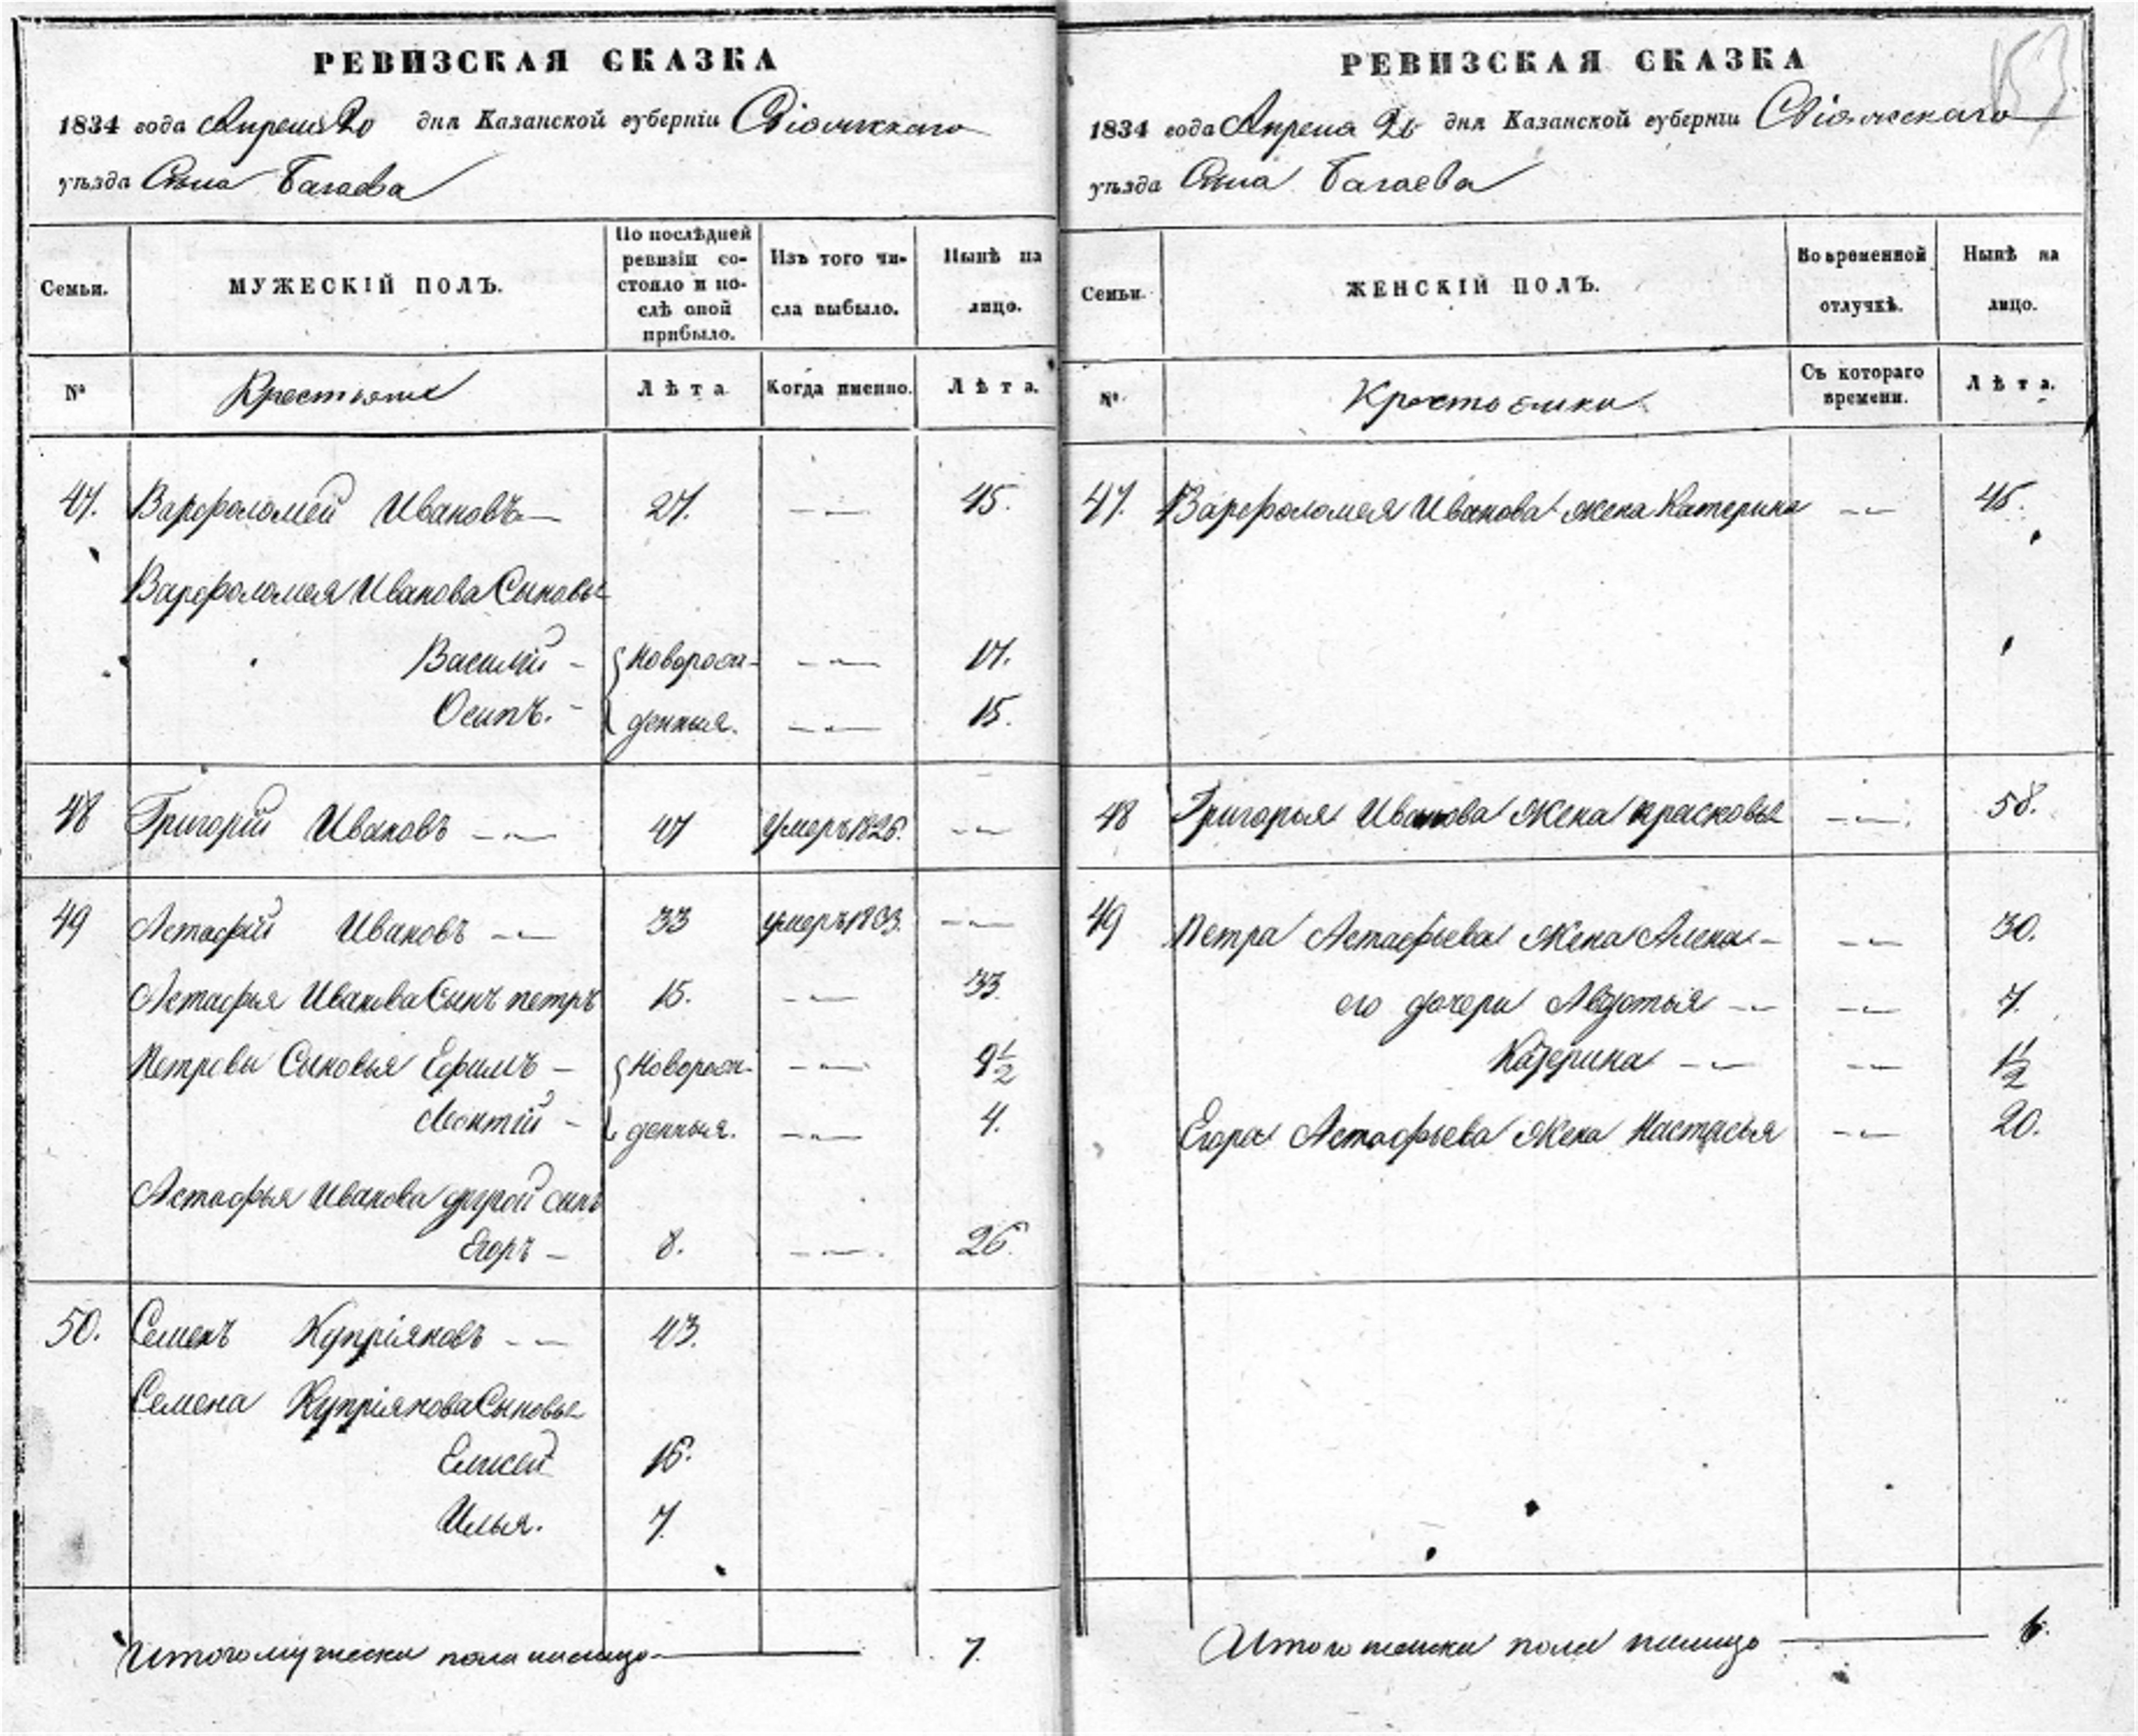 РЕВИЗСКАЯ СКАЗКА
1834 года Апреля 20 дня Казанской губерніи Свіяжскаго
уѣзда Села Багаева
Семьи.
МУЖЕСКІЙ ПОЛЪ.
По послѣдней
ревизіи со-
стояло и по-
слѣ оной
прибыло.
Изъ того чи-
сла выбыло.
Нынѣ на
лицо.
№
Крестьяне
Лѣта
Когда именно.
Лѣта.
47. Варфоломей Ивановъ 27. 45.
Варфоломея Иванова Сыновья
Василій Новорож- 17.
Осипъ. денныя. 15.
48 Григорій Ивановъ 47 умеръ 1826.
49 Астафій Ивановъ 33 умеръ 1833.
Астафья Иванова Сынъ петръ 15. 33.
Петровы Сыновья Ефимъ Новорож- 9 1/2
Леонтій денныя. 4.
Астафья Иванова другой сынъ
Егоръ 8. 26.
50. Семенъ Купріяновъ 43.
Семена Купріянова Сыновья
Елисей 16.
Илья. 7.
Итого мужеска пола налицо 7.
153
РЕВИЗСКАЯ СКАЗКА
1834 года Апреля 20 дня Казанской губерніи Свіяжскаго
уѣзда Села Багаева
Семьи.
ЖЕНСКІЙ ПОЛЪ.
Во временной
отлучкѣ.
Нынѣ на
лицо.
№.
Крестьянки
Съ котораго
времени.
Лѣта.
47. Варфоломея Иванова жена Катерина 45.
48 Григорья Иванова Жена прасковья 58.
49 Петра Астафьева Жена Алена 30.
его дочери Авдотья 7.
Катерина 1/2
Егора Астафьева Жена Настасья 20.
Итого женска пола налицо 6.